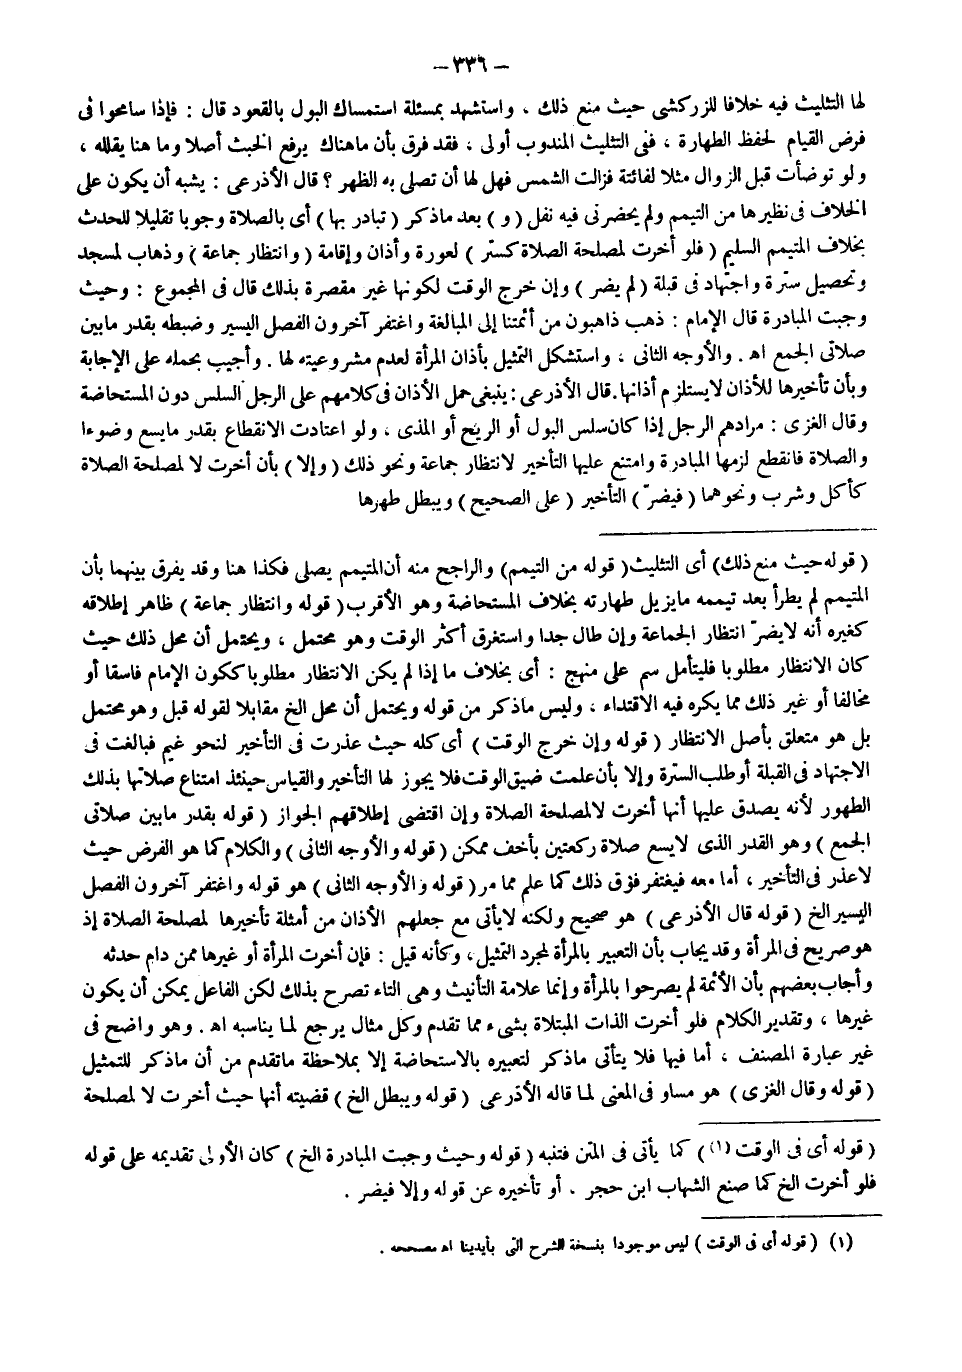 – ٣٣٦ –
لها التثليث فيه خلافا للزركشى حيث منع ذلك ، واستشهد بمسئلة استمساك البول بالقعود قال : فإذا سامحوا فى
فرض القيام لحفظ الطهارة ، ففى التثليث المندوب أولى ، فقد فرق بأن ماهناك يرفع الخبث أصلا وما هنا يقلله ،
ولو توضأت قبل الزوال مثلا لفائتة فزالت الشمس فهل لها أن تصلى به الظهر ؟ قال الأذرعى : يشبه أن يكون على
الخلاف فى نظيرها من التيمم ولم يحضرنى فيه نفل ( و ) بعد ماذكر ( تبادر بها ) أى بالصلاة وجوبا تقليلا للحدث
بخلاف المتيمم السليم ( فلو أخرت لمصلحة الصلاة كستر ) لعورة وأذان وإقامة ( وانتظار جماعة ) وذهاب لمسجد
وتحصيل سترة واجتهاد فى قبلة ( لم يضر ) وإن خرج الوقت لكونها غير مقصرة بذلك قال فى المجموع : وحيث
وجبت المبادرة قال الإمام : ذهب ذاهبون من أئمتنا إلى المبالغة واغتفر آخرون الفصل اليسير وضبطه بقدر مابين
صلاتى الجمع اه . والأوجه الثانى ، واستشكل التمثيل بأذان المرأة لعدم مشروعيته لها . وأجيب بحمله على الإجابة
وبأن تأخيرها للأذان لايستلزم أذانها.قال الأذرعى : ينبغى حمل الأذان فى كلامهم على الرجل السلس دون المستحاضة
وقال الغزى : مرادهم الرجل إذا كان سلس البول أو الريح أو المذى ، ولو اعتادت الانقطاع بقدر مايسع وضوءا
والصلاة فانقطع لزمها المبادرة وامتنع عليها التأخير لانتظار جماعة ونحو ذلك ( وإلا ) بأن أخرت لا لمصلحة الصلاة
كأكل وشرب ونحوهما ( فيضرّ ) التأخير ( على الصحيح ) ويبطل طهرها
( قوله حيث منع ذلك ) أى التثليث ( قوله من التيمم ) والراجح منه أن المتيمم يصلى فكذا هنا وقد يفرق بينهما بأن
المتيمم لم يطرأ بعد تيممه مايزيل طهارته بخلاف المستحاضة وهو الأقرب ( قوله وانتظار جماعة ) ظاهر إطلاقه
كغيره أنه لايضرّ انتظار الجماعة وإن طال جدا واستغرق أكثر الوقت وهو محتمل ، ويحتمل أن محل ذلك حيث
كان الانتظار مطلوبا فليتأمل سم على منهج : أى بخلاف ما إذا لم يكن الانتظار مطلوبا ككون الإمام فاسقا أو
مخالفا أو غير ذلك مما يكره فيه الاقتداء ، وليس ماذكر من قوله ويحتمل أن محل الخ مقابلا لقوله قبل وهو محتمل
بل هو متعلق بأصل الانتظار ( قوله وإن خرج الوقت ) أى كله حيث عذرت فى التأخير لنحو غيم فبالغت فى
الاجتهاد فى القبلة أو طلب السترة وإلا بأن علمت ضيق الوقت فلا يجوز لها التأخير والقياس حينئذ امتناع صلاتها بذلك
الطهور لأنه يصدق عليها أنها أخرت لالمصلحة الصلاة وإن اقتضى إطلاقهم الجواز ( قوله بقدر مابين صلاتى
الجمع ) وهو القدر الذى لايسع صلاة ركعتين بأخف ممكن ( قوله والأوجه الثانى ) والكلام كما هو الفرض حيث
لاعذر فى التأخير ، أما معه فيغتفر فوق ذلك كما علم مما مر ( قوله والأوجه الثانى ) هو قوله واغتفر آخرون الفصل
اليسير الخ ( قوله قال الأذرعى ) هو صحيح ولكنه لايأتى مع جعلهم الأذان من أمثلة تأخيرها لمصلحة الصلاة إذ
هو صريح فى المرأة وقد يجاب بأن التعبير بالمرأة لمجرد التمثيل ، وكأنه قيل : فإن أخرت المرأة أو غيرها ممن دام حدثه
وأجاب بعضهم بأن الأئمة لم يصرحوا بالمرأة وإنما علامة التأنيث وهى التاء تصرح بذلك لكن الفاعل يمكن أن يكون
غيرها ، وتقدير الكلام فلو أخرت الذات المبتلاة بشىء مما تقدم وكل مثال يرجع لما يناسبه اه . وهو واضح فى
غير عبارة المصنف ، أما فيها فلا يتأتى ماذكر لتعبيره بالاستحاضة إلا بملاحظة ماتقدم من أن ماذكر للتمثيل
( قوله وقال الغزى ) هو مساو فى المعنى لما قاله الأذرعى ( قوله ويبطل الخ ) قضيته أنها حيث أخرت لا لمصلحة
( قوله أى فى الوقت (١) ) كما يأتى فى المتن فتنبه ( قوله وحيث وجبت المبادرة الخ ) كان الأولى تقديمه على قوله
فلو أخرت الخ كما صنع الشهاب ابن حجر . أو تأخيره عن قوله وإلا فيضر .
(١) ( قوله أى فى الوقت ) ليس موجودا بنسخة الشرح التى بأيدينا اه مصححه .